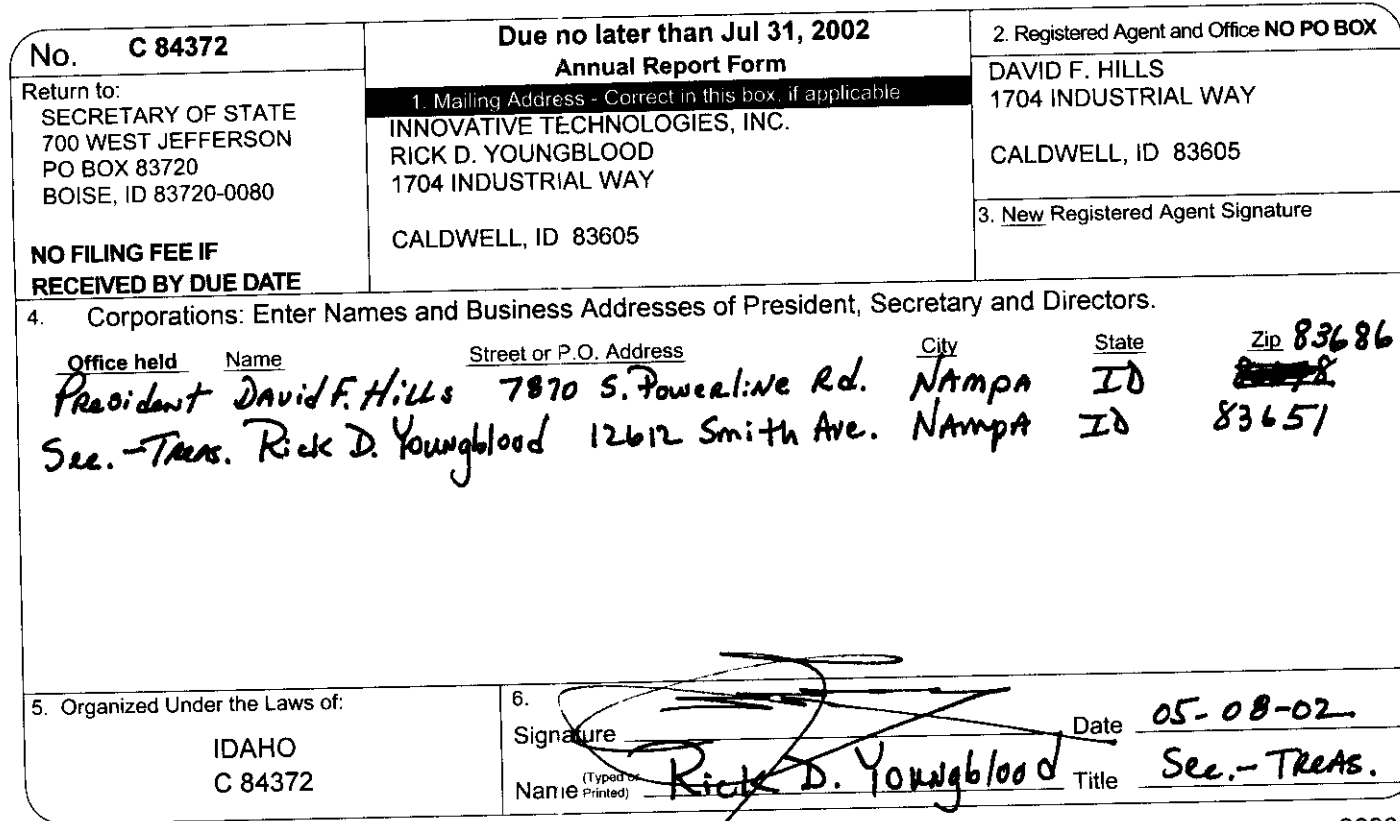 No. C 84372
Return to:
SECRETARY OF STATE
700 WEST JEFFERSON
PO BOX 83720
BOISE, ID 83720-0080
NO FILING FEE IF
RECEIVED BY DUE DATE
Due no later than Jul 31, 2002
Annual Report Form
1. Mailing Address - Correct in this box, if applicable
INNOVATIVE TECHNOLOGIES, INC.
RICK D. YOUNGBLOOD
1704 INDUSTRIAL WAY
CALDWELL, ID 83605
2. Registered Agent and Office NO PO BOX
DAVID F. HILLS
1704 INDUSTRIAL WAY
CALDWELL, ID 83605
3. New Registered Agent Signature
4. Corporations: Enter Names and Business Addresses of President, Secretary and Directors.
Office held Name Street or P.O. Address City State Zip 83686
President David F. Hills 7870 S. Powerline Rd. NAmpA ID
Sec.-Treas. Rick D. Youngblood 12612 Smith Ave. NAmpA ID 83651
5. Organized Under the Laws of:
IDAHO
C 84372
6.
Signature Date 05-08-02
Name (Typed or Printed) Rick D. Youngblood Title Sec.-Treas.